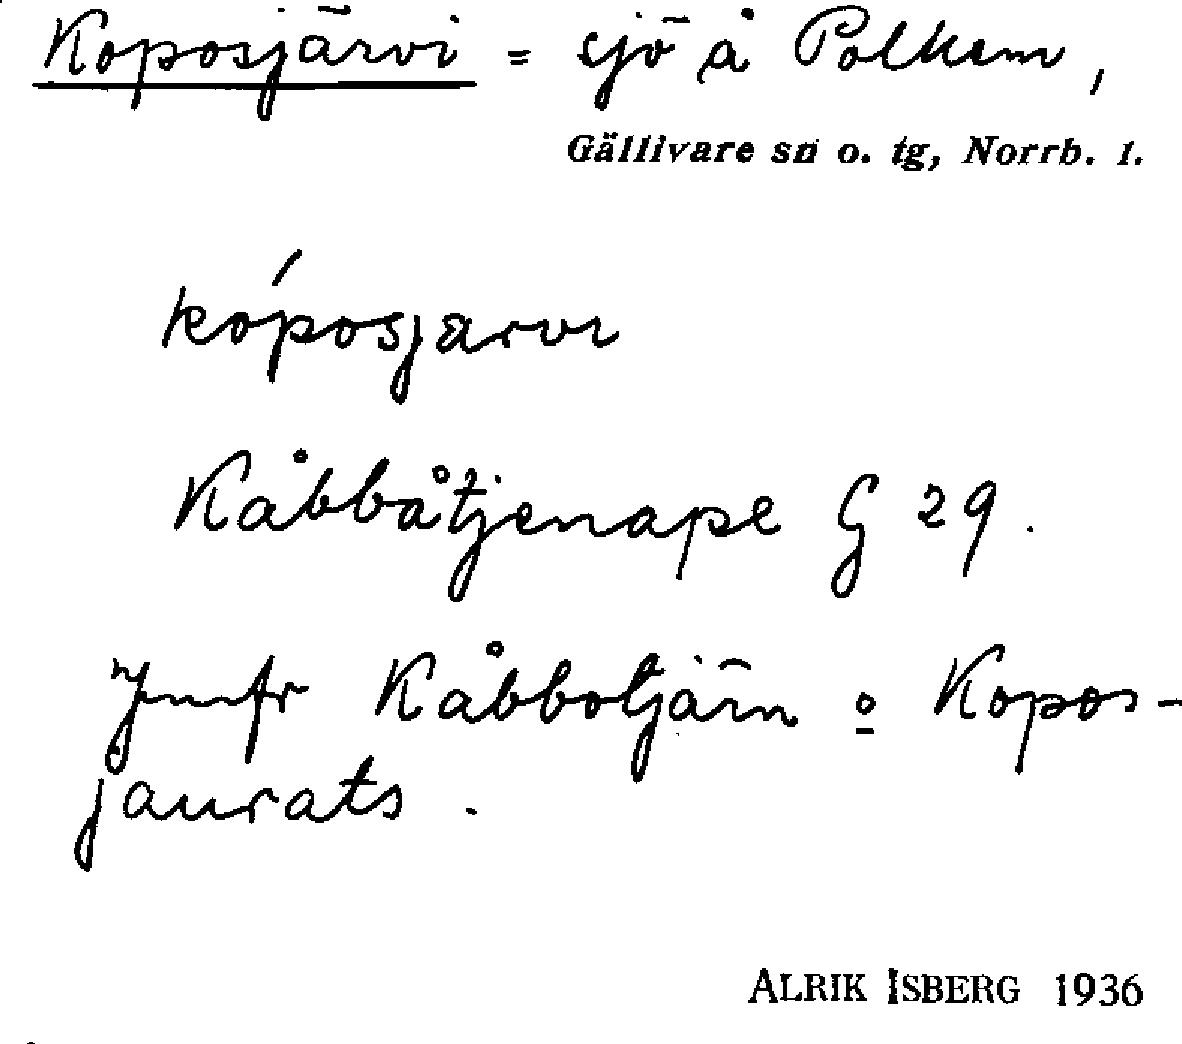 Koposjärvi = sjö å Polkem,
Gällivare sn o. tg, Norrb. l.
kóposjarvi
Kåbbåtjenape G 29.
Jmfr Kåbbotjärn o Kopos-
jaurats.
ALRIK ISBERG 1936